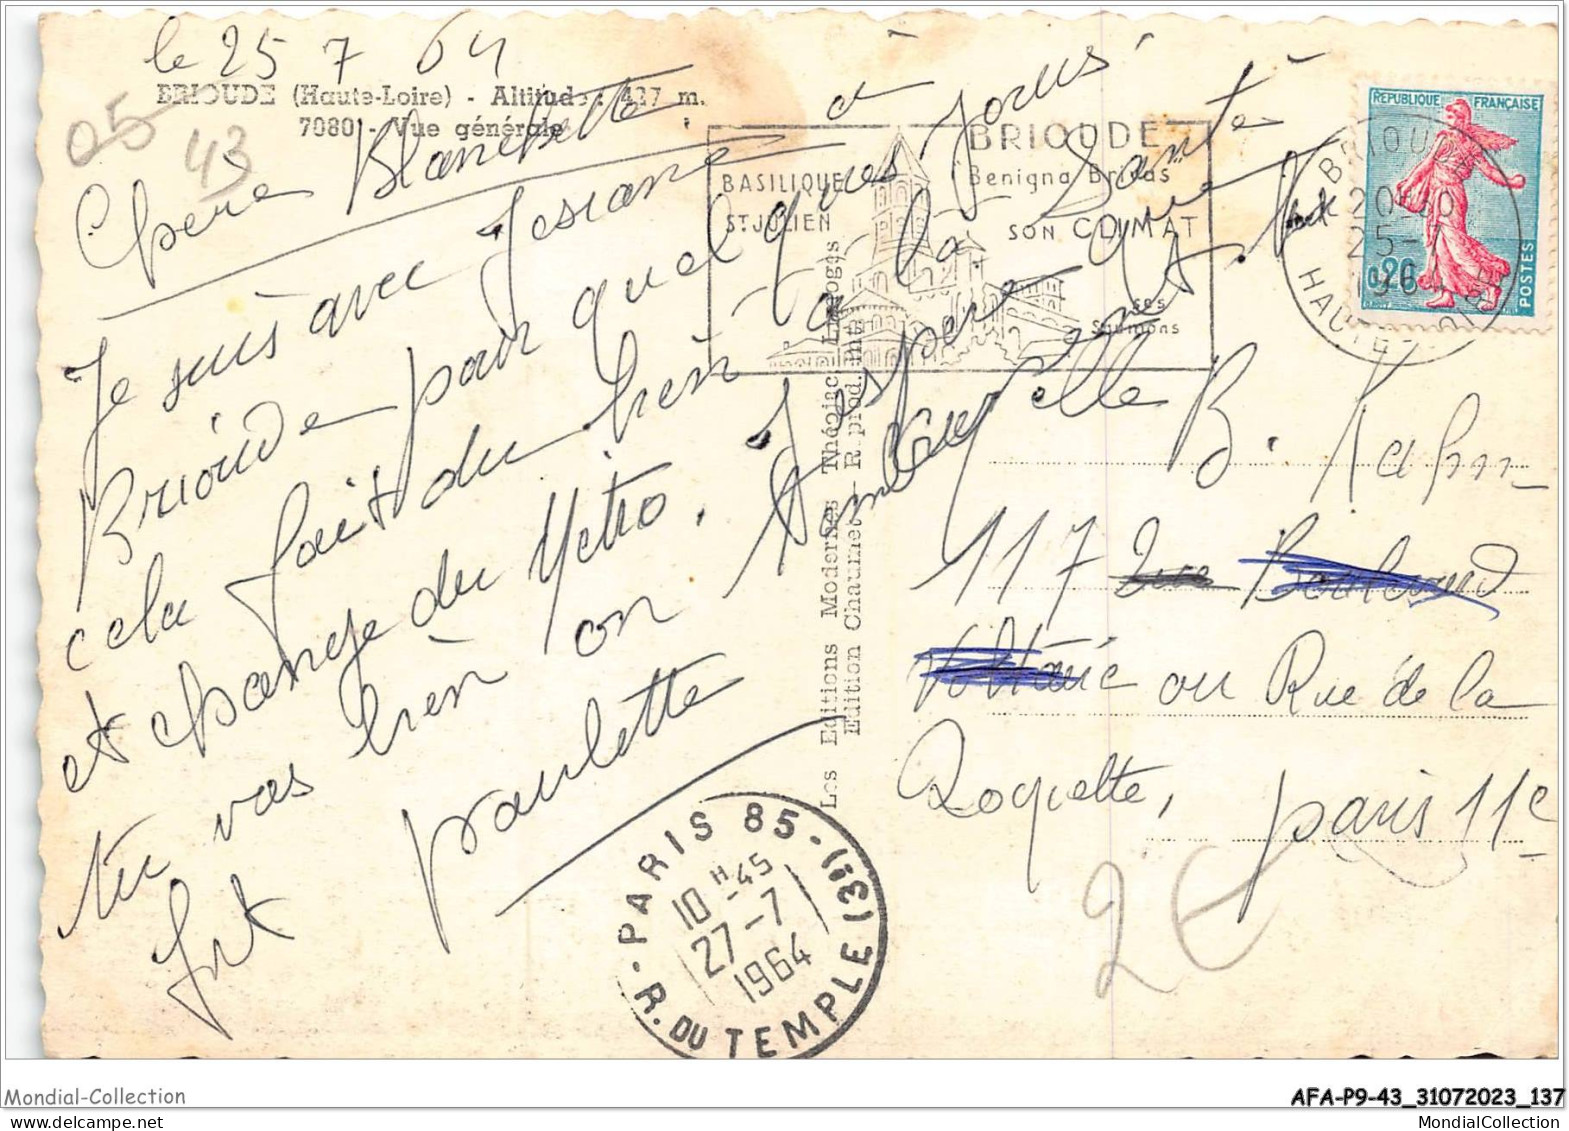 le 25 7 64
BRIOUDE (Haute-Loire) - Altitude : 427 m.
7080 - Vue générale
05
43
Chère Blanchette
Je suis avec Josiane à
Brioude pour quelques jours
cela fait du bien à la santé
et change du Métro. J'espère que
tu vas bien on
frt
paulette
BASILIQUE
ST JULIEN
BRIOUDE
Benigna Brivas
SON CLIMAT
ses
Saumons
REPUBLIQUE FRANÇAISE
0,20
POSTES
BRIOUDE
25-7
1964
HAUTE-LOIRE
Les Editions Modernes Théojac Limoges
Edition Chaumet - Reprod. int.
Melle B. Kahn
117 Rue Boulevard
Voltaire ou Rue de la
Roquette, paris 11e
2€
PARIS 85 - (13)
10 H 45
27-7
1964
R. DU TEMPLE
Mondial-Collection
AFA-P9-43_31072023_137
MondialCollection